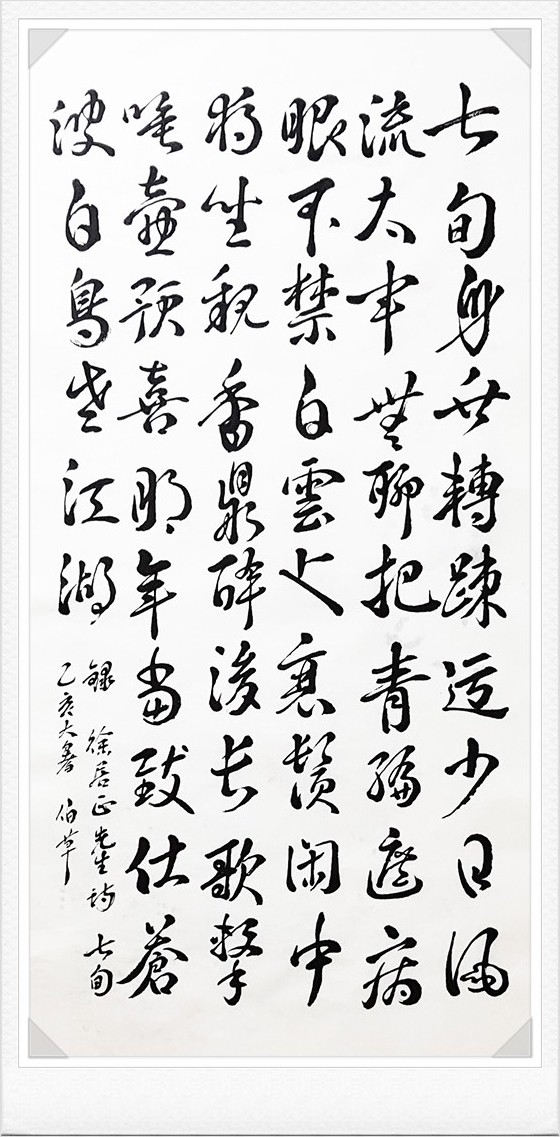 七旬身世轉踈迂少日風
流太半無聊把青編遮病
眼不禁白雲上衰鬚閑中
獨坐親香鼎醉後長歌擊
唾壺預喜明年當致仕蒼
波白鳥江湖
錄 徐居正先生詩 七旬
乙亥大暑 伯草